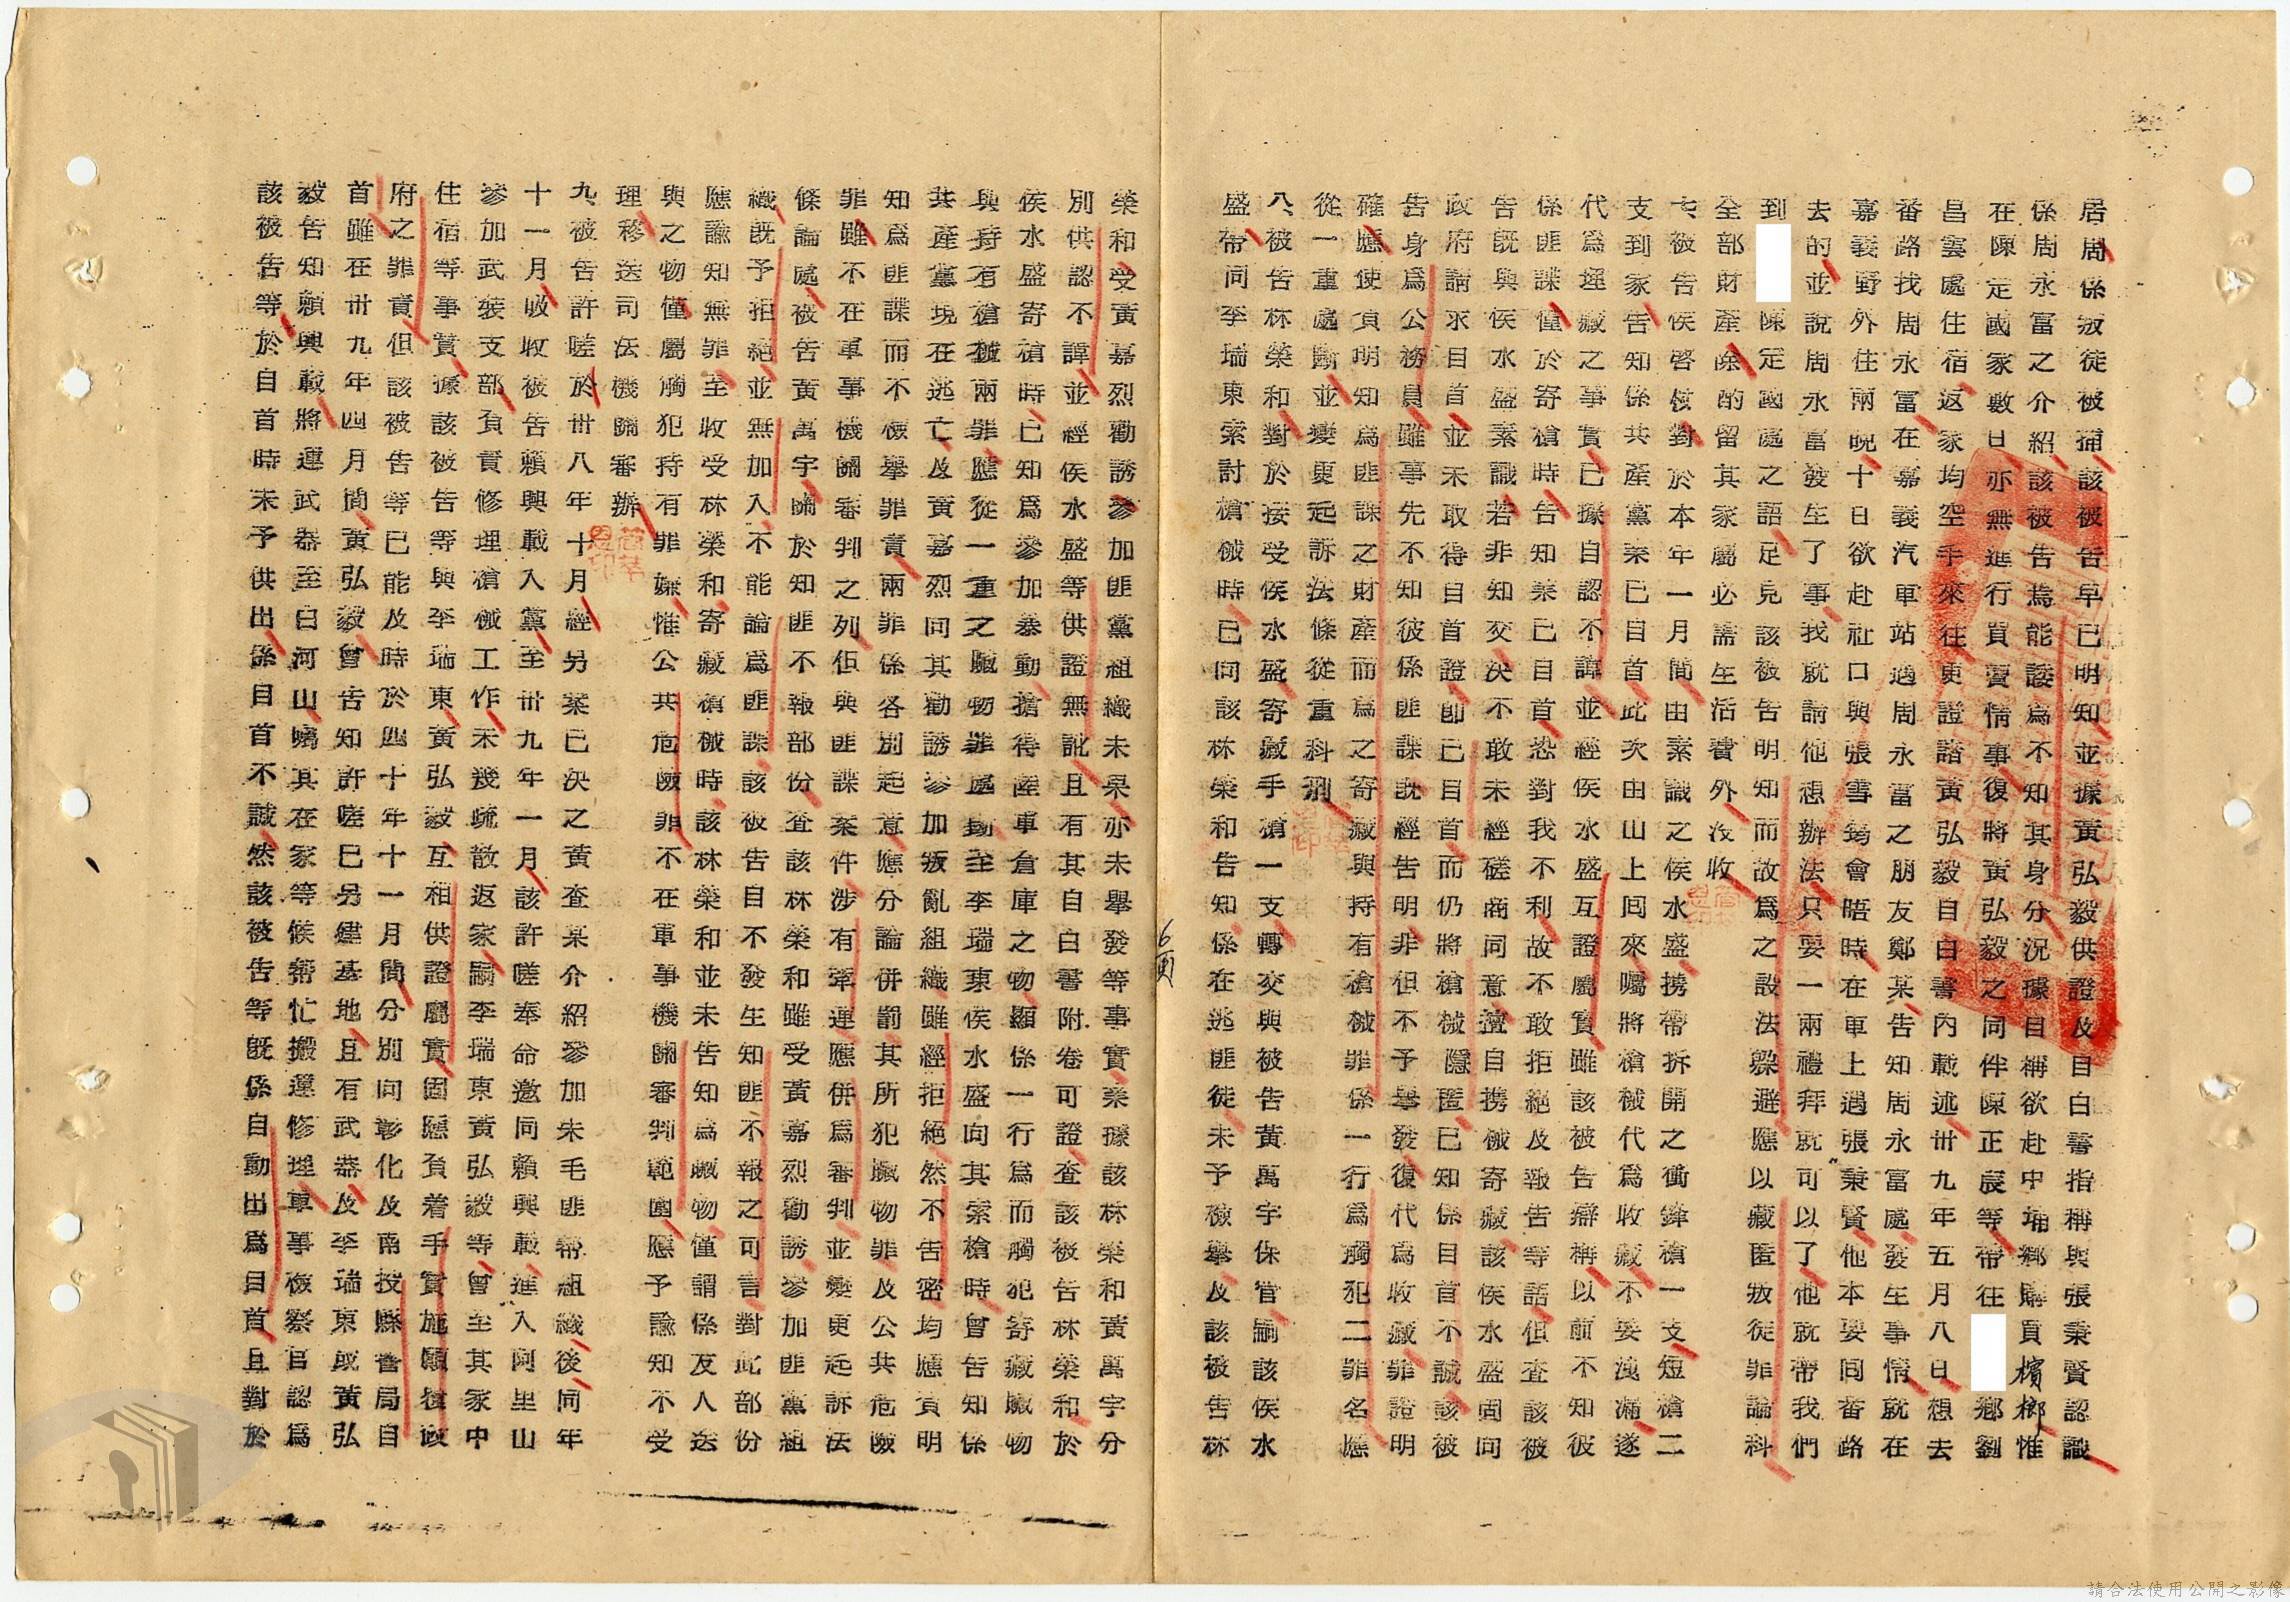 居周係叛徒被捕該被告早已明知並據黃弘毅供證及自白書指稱與張秉賢認識
係周永富之介紹該被告焉能諉為不知其身分況據自稱欲赴中埔鄉購買檳榔惟
在陳定國家數日亦無進行買賣情事復將黃弘毅之同伴陳正宸等帶往 鄉劉
昌雲處住宿返家均空手來往更證諸黃弘毅自白書內載述卅九年五月八日想去
番路找周永富在嘉義汽車站遇周永富之朋友鄭某告知周永富處發生事情就在
嘉義野外住兩晚十日欲赴社口與張雪筠會晤時在車上遇張秉賢他本要同番路
去的並說周永富發生了事找就請他想辦法只要一兩禮拜就可以了他就帶我們
到 陳定國處之語足見該被告明知而故為之設法躲避應以藏匿叛徒罪論科
全部財產除酌留其家屬必需生活費外沒收
七、被告侯啓核對於本年一月間由素識之侯水盛携帶拆開之衝鋒槍一支短槍二
支到家告知係共產黨案已自首此次由山上回來囑將槍械代為收藏不要洩漏遂
代為埋藏之事實已據自認不諱並經侯水盛互證屬實雖該被告辯稱以前不知彼
係匪諜僅於寄槍時告知案已自首恐對我不利故不敢拒絕及報告等語但查該被
告既與侯水盛素識若非知交決不敢未經磋商同意擅自携械寄藏該侯水盛固向
政府請求自首並未取得自首證即已自首而仍將槍械隱匿已知係自首不誠該被
告身為公務員雖事先不知彼係匪諜既經告明非但不予舉發復代為收藏罪證明
確應使負明知為匪諜之財產而為之寄藏與持有槍械罪係一行為觸犯二罪名應
從一重處斷並變更起訴法條從重科刑
八、被告林榮和對於接受侯水盛寄藏手槍一支轉交與被告黃萬字保管嗣該侯水
盛帶同李瑞東索討槍械時已向該林榮和告知係在逃匪徒未予檢舉及該被告林
榮和受黃嘉烈勸誘參加匪黨組織未果亦未舉發等事實業據該林榮和黃萬字分
別供認不諱並經侯水盛等供證無訛且有其自白書附卷可證查該被告林榮和於
侯水盛寄槍時已知為參加暴動搶得陸軍倉庫之物顯係一行為而觸犯寄藏贓物
與持有槍械兩罪應從一重之贓物罪處斷至李瑞東侯水盛向其索槍時曾告知係
共產黨現在逃亡及黃嘉烈同其勸誘參加叛亂組織雖經拒絕然不告密均應負明
知為匪諜而不檢舉罪責兩罪係各別起意應分論併罰其所犯贓物罪及公共危險
罪雖不在軍事機關審判之列但與匪諜案件涉有牽連應併為審判並變更起訴法
條論處被告黃萬字關於知匪不報部份查該林榮和雖受黃嘉烈勸誘參加匪黨組
織既予拒絕並無加入不能論為匪諜該被告自不發生知匪不報之可言對此部份
應諭知無罪至收受林榮和寄藏槍械時該林榮和並未告知為贓物僅謂係友人送
與之物僅屬觸犯持有罪嫌惟公共危險罪不在軍事機關審判範圍應予諭知不受
理移送司法機關審辦
九、被告許嗟於卅八年十月經另案已決之黃查某介紹參加朱毛匪幫組織後同年
十一月吸收被告賴興載入黨至卅九年一月該許嗟奉命邀同賴興載進入阿里山
參加武裝支部負責修理槍械工作未幾疏散返家嗣李瑞東黃弘毅等曾至其家中
住宿等事實據該被告等與李瑞東黃弘毅互相供證屬實固應負着手實施顛覆政
府之罪責但該被告等已能及時於四十年十一月間分別向彰化及南投縣警局自
首雖在卅九年四月間黃弘毅曾告知許嗟已另建基地且有武器及李瑞東或黃弘
毅告知賴興載將運武器至白河山囑其在家等候幫忙搬運修理軍事檢察官認為
該被告等於自首時未予供出係自首不誠然該被告等既係自動出為自首且對於
6頁
請合法使用公開之影像